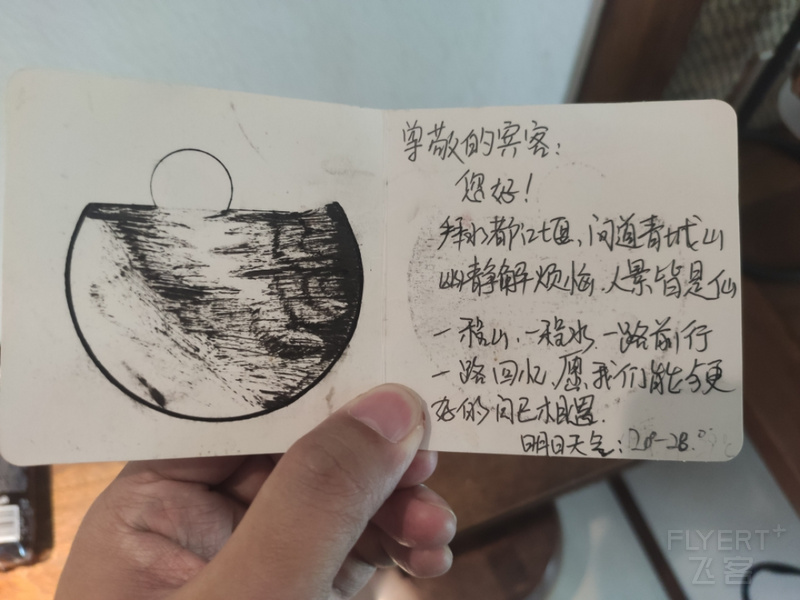 尊敬的宾客：
您好！
拜水都江堰、问道青城山
幽静解烦恼、人景皆是仙
一程山、一程水、一路前行
一路回忆，愿我们能与更
好的自己相遇.
明日天气：20°-28°
FLYERT+
飞客